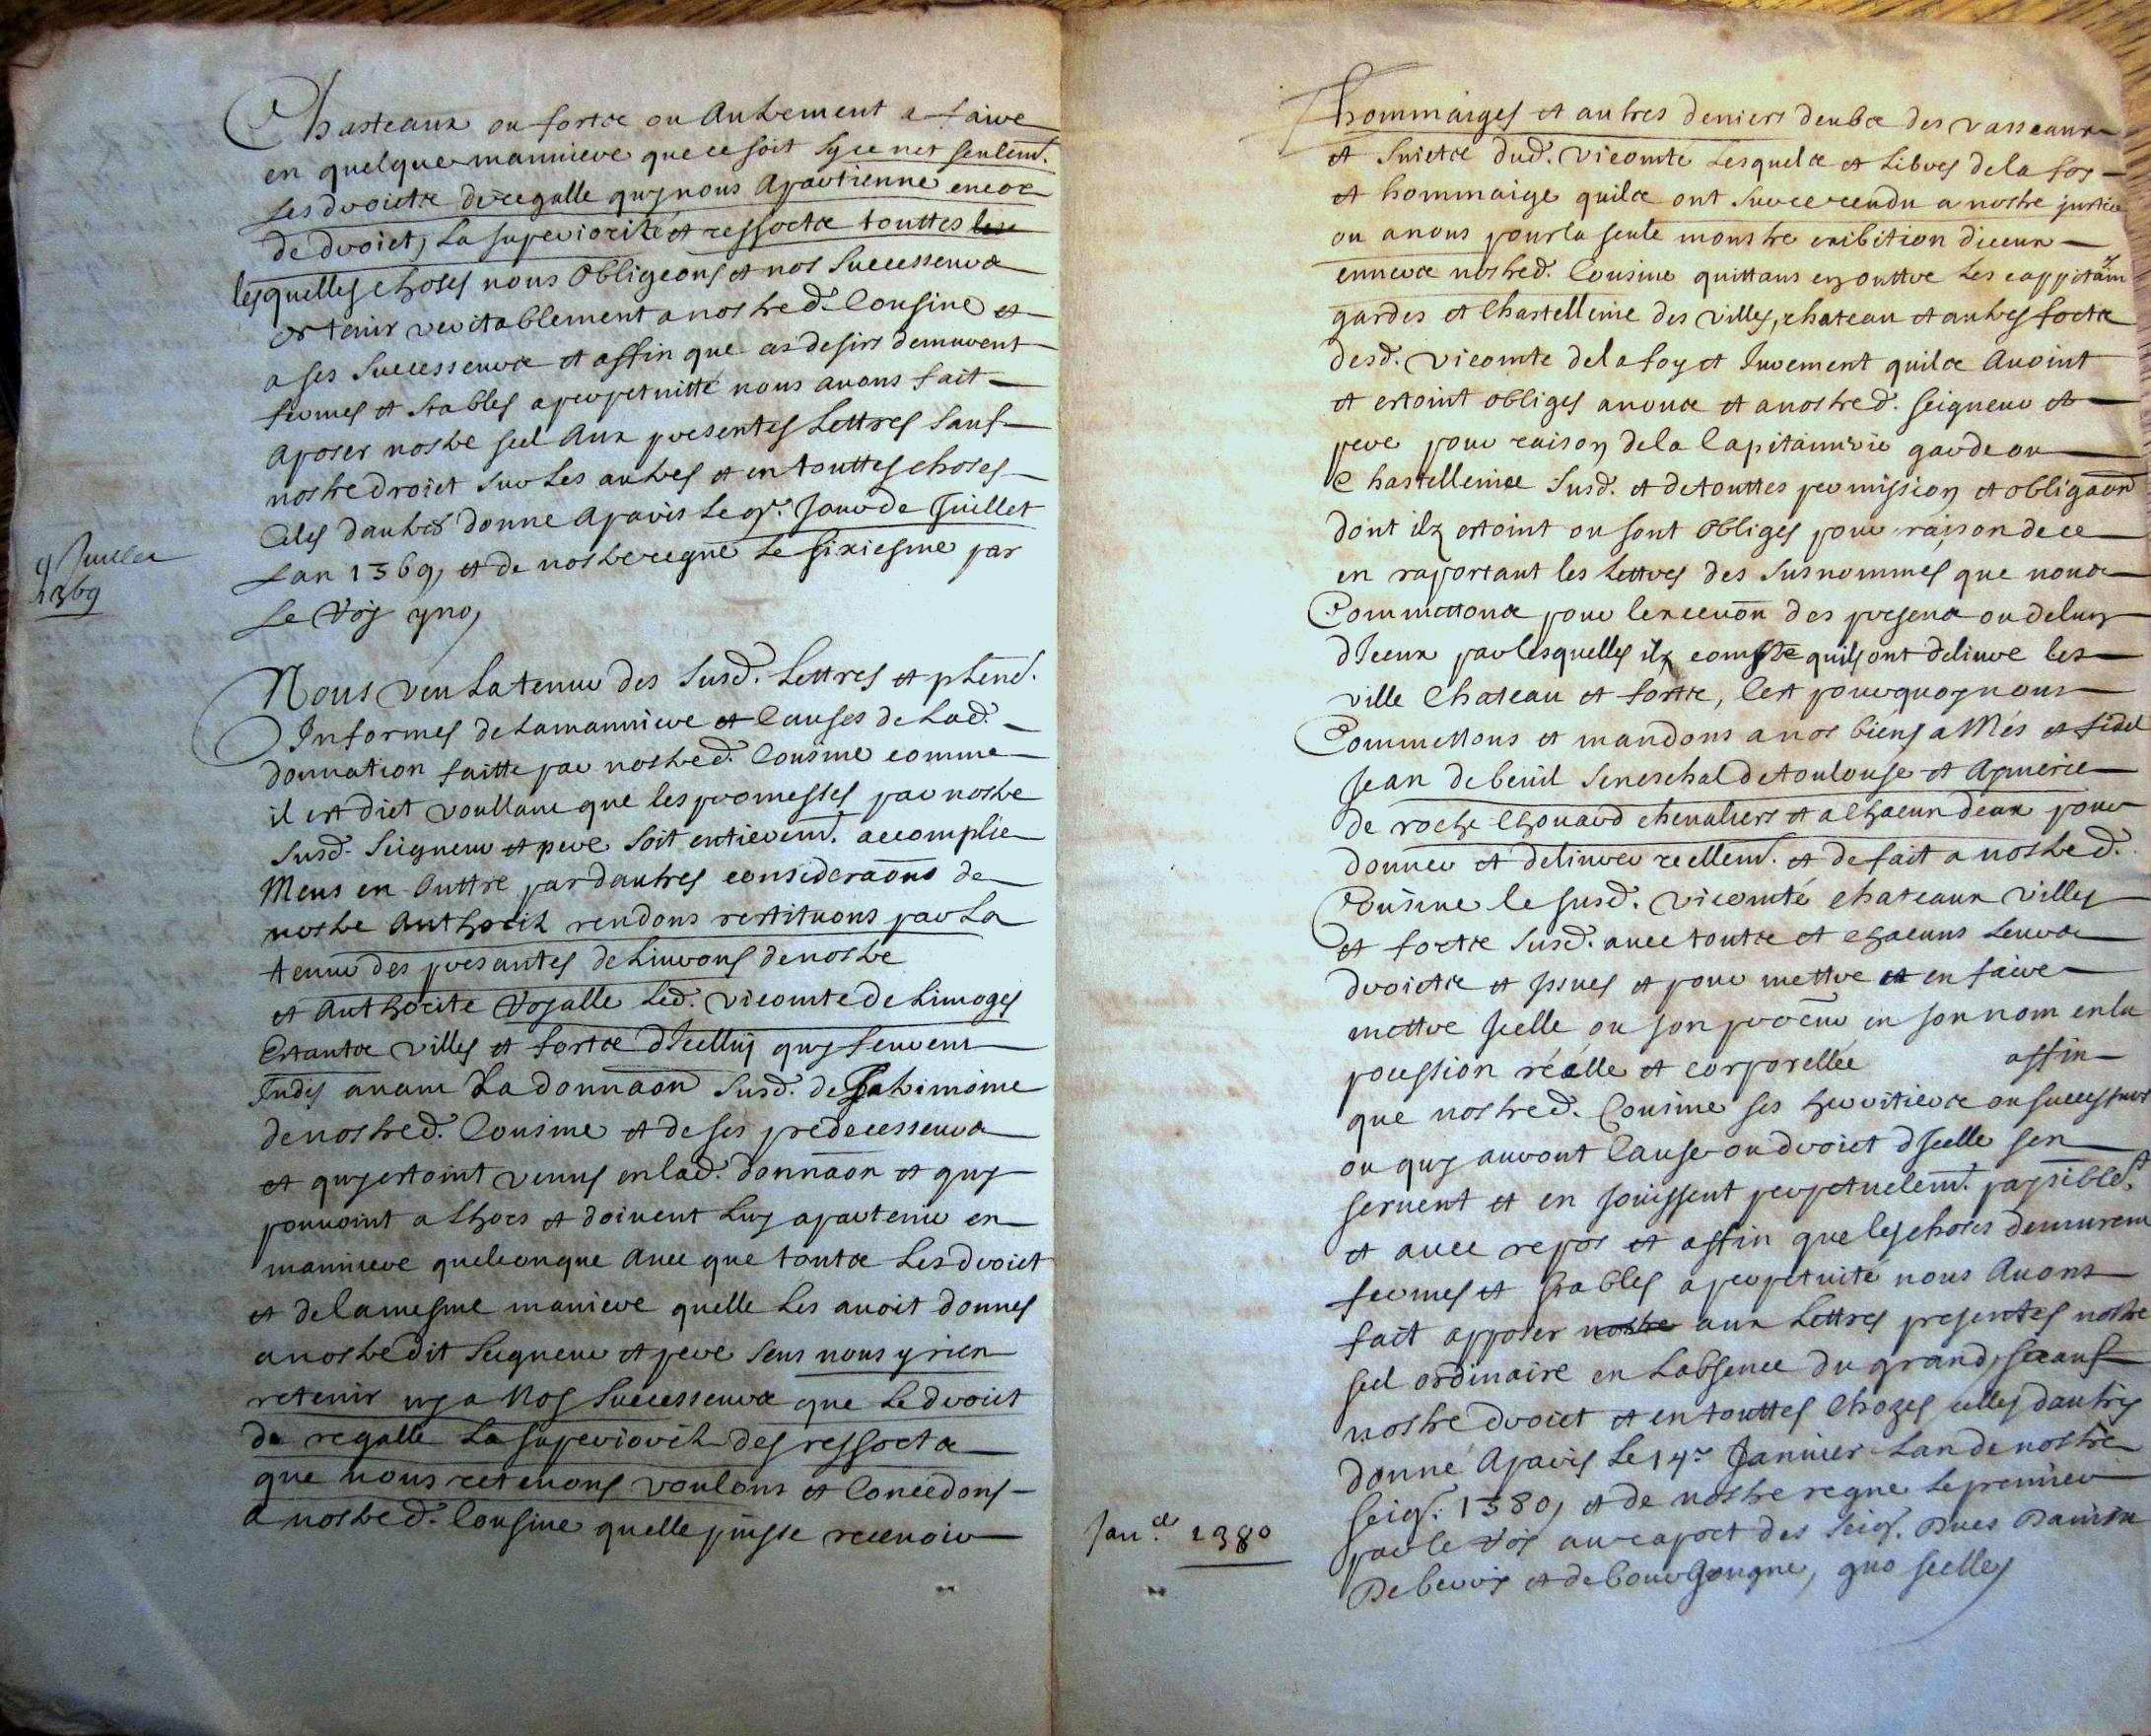 Chasteaux ou fortz ou Autrement a faire
en quelque manniere que ce soit sy ce net seulemt.
Les droictz de regalle quy nous Apartienne encor
de droict, La superiorité et ressortz touttes les
lesquelles choses nous Obligeons et nos Successeurs
et tenir veritablement a nostred. Cousine et
a ses Successeurs et affin que ce desirs demurent
fermes et stables a perpetuitté nous avons fait
Aposer nostre seel Aux presentes Lettres sauf
nostre droict sur Les autres et en touttes choses
Celes dautres donne A paris Le 9e. Jour de Juillet
Lan 1369, et de nostre regne Le sixiesme par
Le Roy yno,
9 Juillet
1369
Nous veu La tenur des susd. Lettres et plend.
Informes de La manniere et Causes de Lad.
donnation faitte par nostred. Cousine comme
il est dict voullant que les promesses par nostre
susd. Seigneur et pere soit entieremt. accomplie
Meus en Outtre par dautres consideraons de
nostre Authorité rendons restituons par La
tenur des presantes delivrons de nostre
et Authorite Royalle Led. vicomte de Limoges
Estantz villes et fortz dIcelluy quy feurent
Jadis avant La donnaon susd. de Patrimoine
de nostred. Cousine et de ses predecesseurs
et quy estoint venus en lad. donnaon et quy
pouvoint alhors et doivent Luy apartenir en
manniere quelconque Avec que toutz Les droict
et de la mesme maniere quelle Les avoit donnes
a nostredit Seigneur et pere sens nous y rien
retenir ny a Nos Successeurs que Le droict
de regalle La superiorité des ressortz
que nous retenons voulons et Concedons
a nostred. Cousine quelle puisse recevoir
hommaiges et autres deniers deubz des vasseaux
et suietz dud. vicomté Lesquelz et Libres de la foy
et hommaige quilz ont sur ce rendu a nostre justice
ou a nous pour la seule monstre exibition diceux
envers nostred. Cousine quittans en outtre Les cappitain
gardes et Chastellenie des villes, chateau et autres fortz
desd. vicomte de la foy et Jurement quilz Avoint
et estoint obliges a nous et a nostred. seigneur et
pere pour raison de la Capitainnerie garde ou
Chastellenie susd. et de touttes permission et obligaon
dont ilz estoint ou sont Obliges pour raison de ce
en raportant les Lettres des susnommes que nous
Commettons pour lexecuon des presens ou de luy
dIceux par lesquelles ilz comste quils ont delivre les
ville Chateau et fortz, Cest pourquoy nous
Commettons et mandons a nos biens aMés et fidel
Jean de beuil seneschal de toulouse et Aymerie
de roche Chouard chevaliers et a Chacun deux pour
donner et delivrer reellemt. et de fait a nostred.
Cousine le susd. vicomté chateaux villes
et fortz susd. avec toutz et chacuns Leurs
droictz et Issues et pour mettre et en faire
mettre Icelle ou son procur en son nom en la
pocession réelle et corporellée affin
que nostred. Cousine ses heritiers ou successeurs
ou quy auront Cause ou droict dIcelle sen
servent et en jouissent perpetuelemt. paysiblet.
et avec repos et affin que les choses demurent
fermes et stables a perpetuité nous Avons
fait apposer nostre aux Lettres presentes nostre
seel ordinaire en Labsence du grand, sauf
nostre droict et en touttes Chozes celles dautruy
donné A paris Le 14e Janvier Lan de nostre
seigr. 1380, et de nostre regne Le premier
Janer. 1380
par le Roy au raport des seigr. Ducs Danjou
De berris et de bourgongne, yno scelles